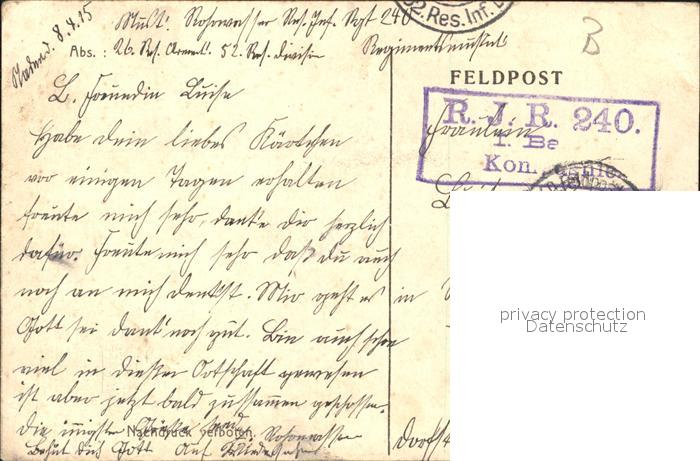 8.4.15
Musk. Rohrwasser Res. Inf. Rgt 240
Abs.: 26. Res. Armeek. 52. Res. Division
Regimentsmusik
Res. Inf.
B
FELDPOST
R. J. R. 240.
1. Ba
Kon.
Fräulein
L. Freundin Luise
Habe dein liebes Kärtchen
vor einigen Tagen erhalten
freute mich sehr, danke dir herzlich
dafür. Freute mich sehr daß du auch
noch an mich denkst. Mir geht es in
Gott sei dank noch gut. Bin auch schon
viel in dießer Ortschaft gewesen
ist aber jetzt bald zusammen geschossen.
die innigsten Grüße send. Rohrwasser
Nachdruck verboten.
Behüt dich Gott Auf Wiedersehn
Dorfstr
privacy protection
Datenschutz